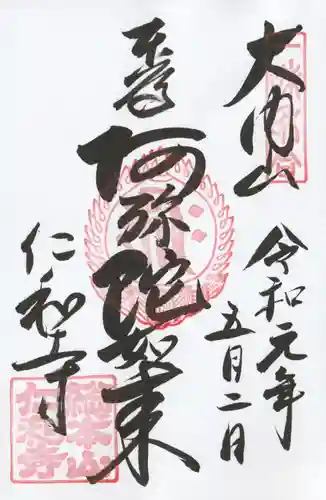 大内山
令和元年
五月二日
奉
阿弥陀如来
仁和寺
総本山
仁和寺